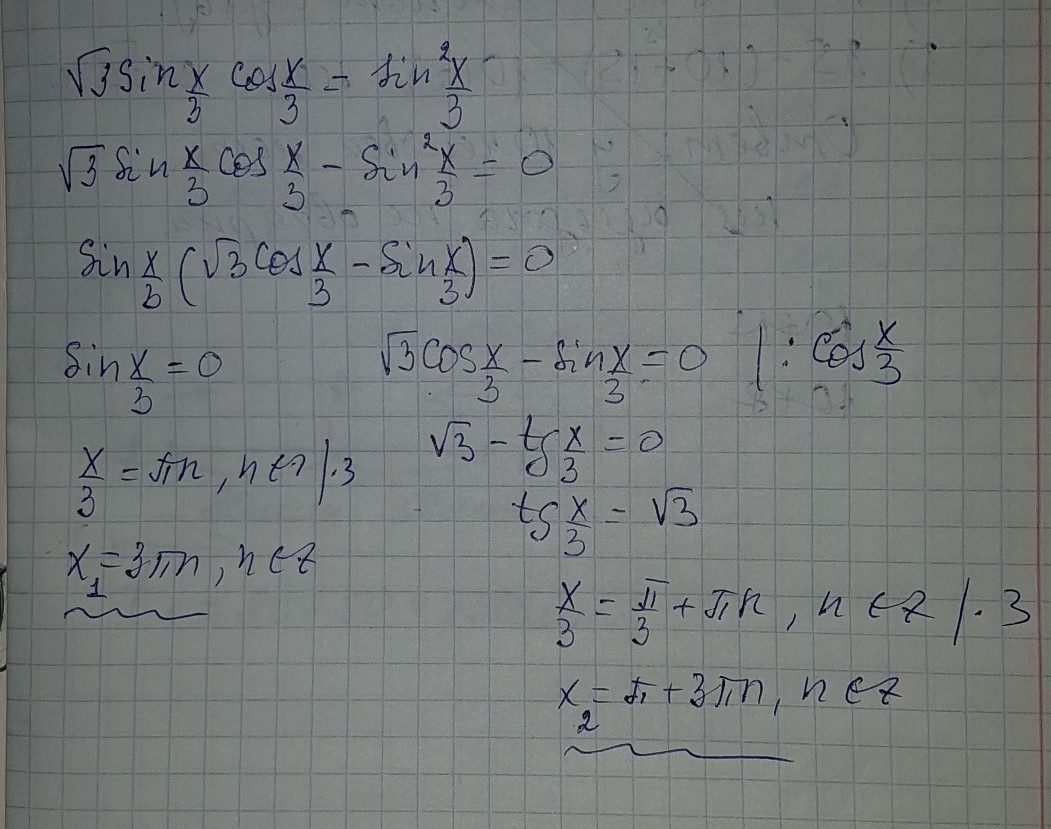 √3 sin x/3 cos x/3 = sin² x/3
√3 sin x/3 cos x/3 − sin² x/3 = 0
sin x/3 (√3 cos x/3 − sin x/3) = 0
sin x/3 = 0
x/3 = πn, n ∈ z | · 3
x₁ = 3πn, n ∈ z
√3 cos x/3 − sin x/3 = 0 | : cos x/3
√3 − tg x/3 = 0
tg x/3 = √3
x/3 = π/3 + πn, n ∈ z | · 3
x₂ = π + 3πn, n ∈ z